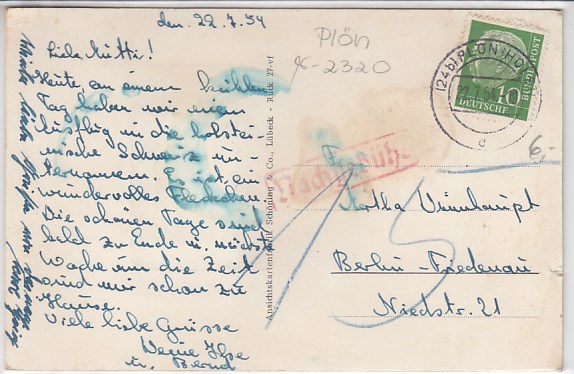 den 22.7.54
Liebe Mutti!
Heute, an einem kühlen
Tag haben wir einen
Ausflug in die holstei-
nische Schweiz un-
ternommen. Es ist ein
wundervolles Fleckchen.
Die schönen Tage sind
bald zu Ende u. nächste
Woche um die Zeit
sind wir schon zu
Hause.
Viele liebe Grüsse
Deine Ilse
u. Bernd
Plön
2320
(24b) PLÖN (HOLST)
DEUTSCHE
BUNDESPOST
10
d
6,-
Nachgebühr
Ansichtskartenfabrik Schöning & Co., Lübeck - Rück 27-vI
Frau
Berlin-Friedenau
Niedstr. 21
15